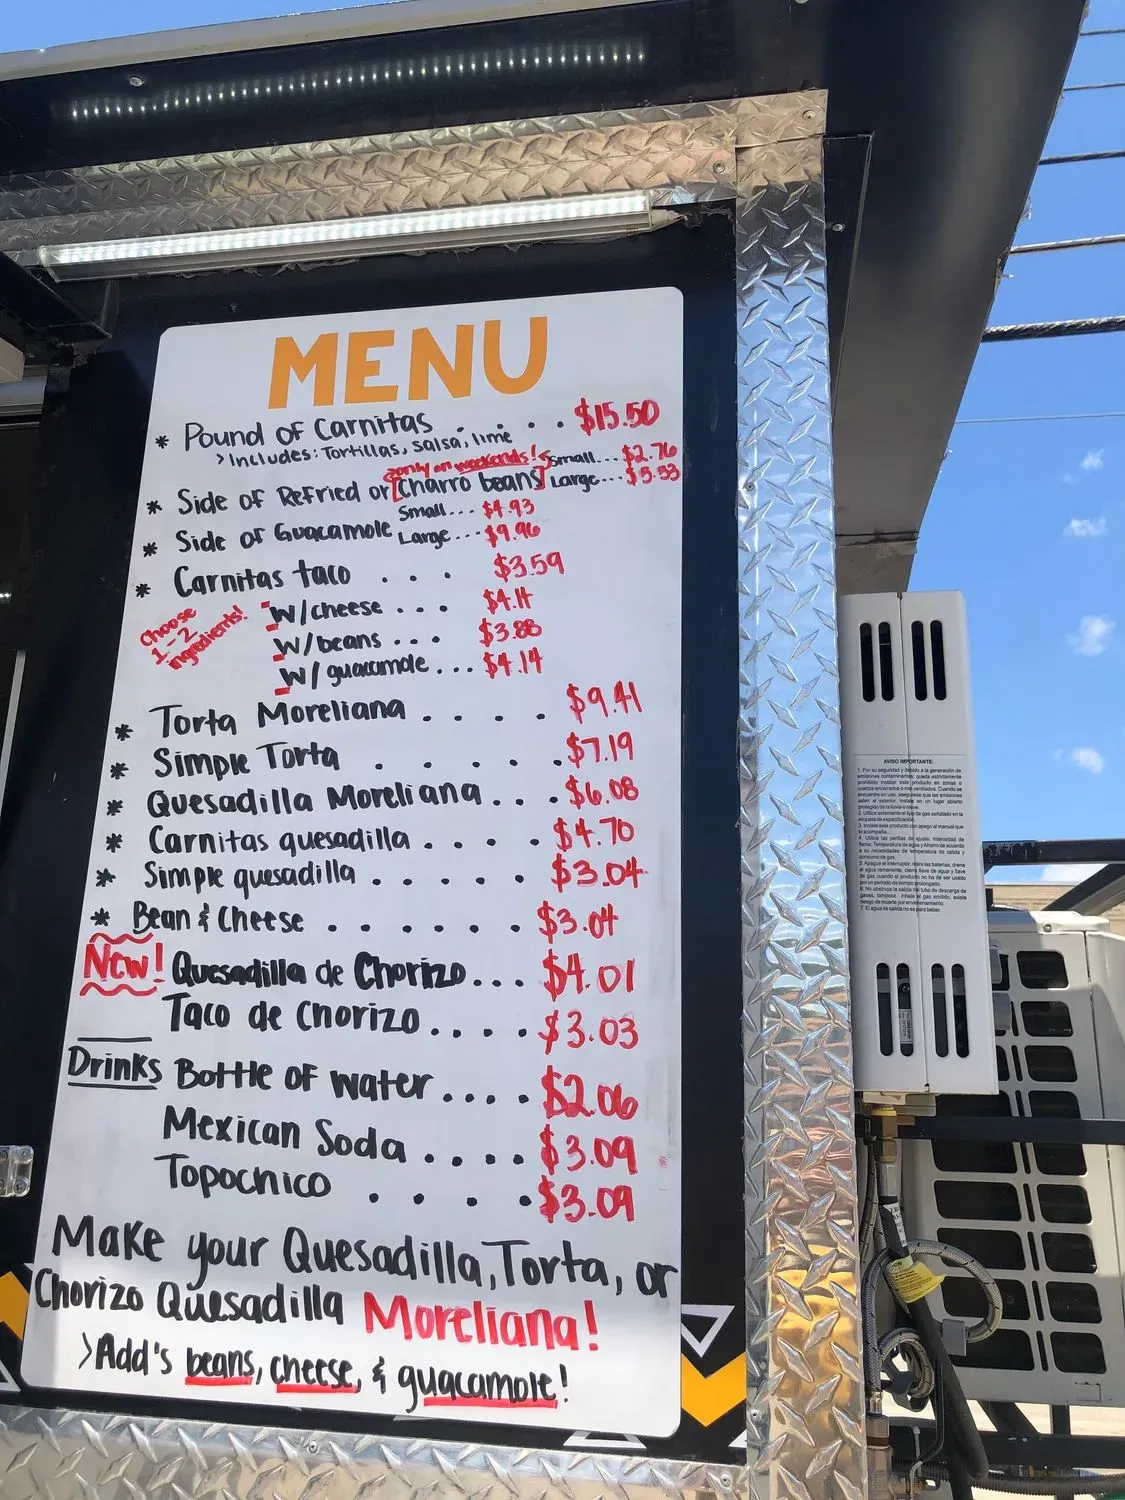 MENU
* Pound of Carnitas . . . . . $15.50
> Includes: Tortillas, salsa, lime
only on weekends!
Small... $2.76
* Side of Refried or [Charro beans] Large... $5.53
Small... $4.93
* Side of Guacamole Large... $9.96
* Carnitas taco . . . $3.59
Choose 1-2 ingredients!
W/cheese . . . $4.14
W/beans . . . $3.88
W/guacamole . . . $4.14
* Torta Moreliana . . . . $9.41
* Simple Torta . . . . . $7.19
* Quesadilla Moreliana . . . $6.08
* Carnitas quesadilla . . . . $4.70
* Simple quesadilla . . . . . $3.04
* Bean & Cheese . . . . . . $3.04
New! Quesadilla de Chorizo... $4.01
Taco de Chorizo . . . . $3.03
Drinks Bottle of water .... $2.06
Mexican Soda . . . . $3.09
Topochico . . . . $3.09
Make your Quesadilla, Torta, or
Chorizo Quesadilla Moreliana!
>Add's beans, cheese, & guacamole!
AVISO IMPORTANTE: